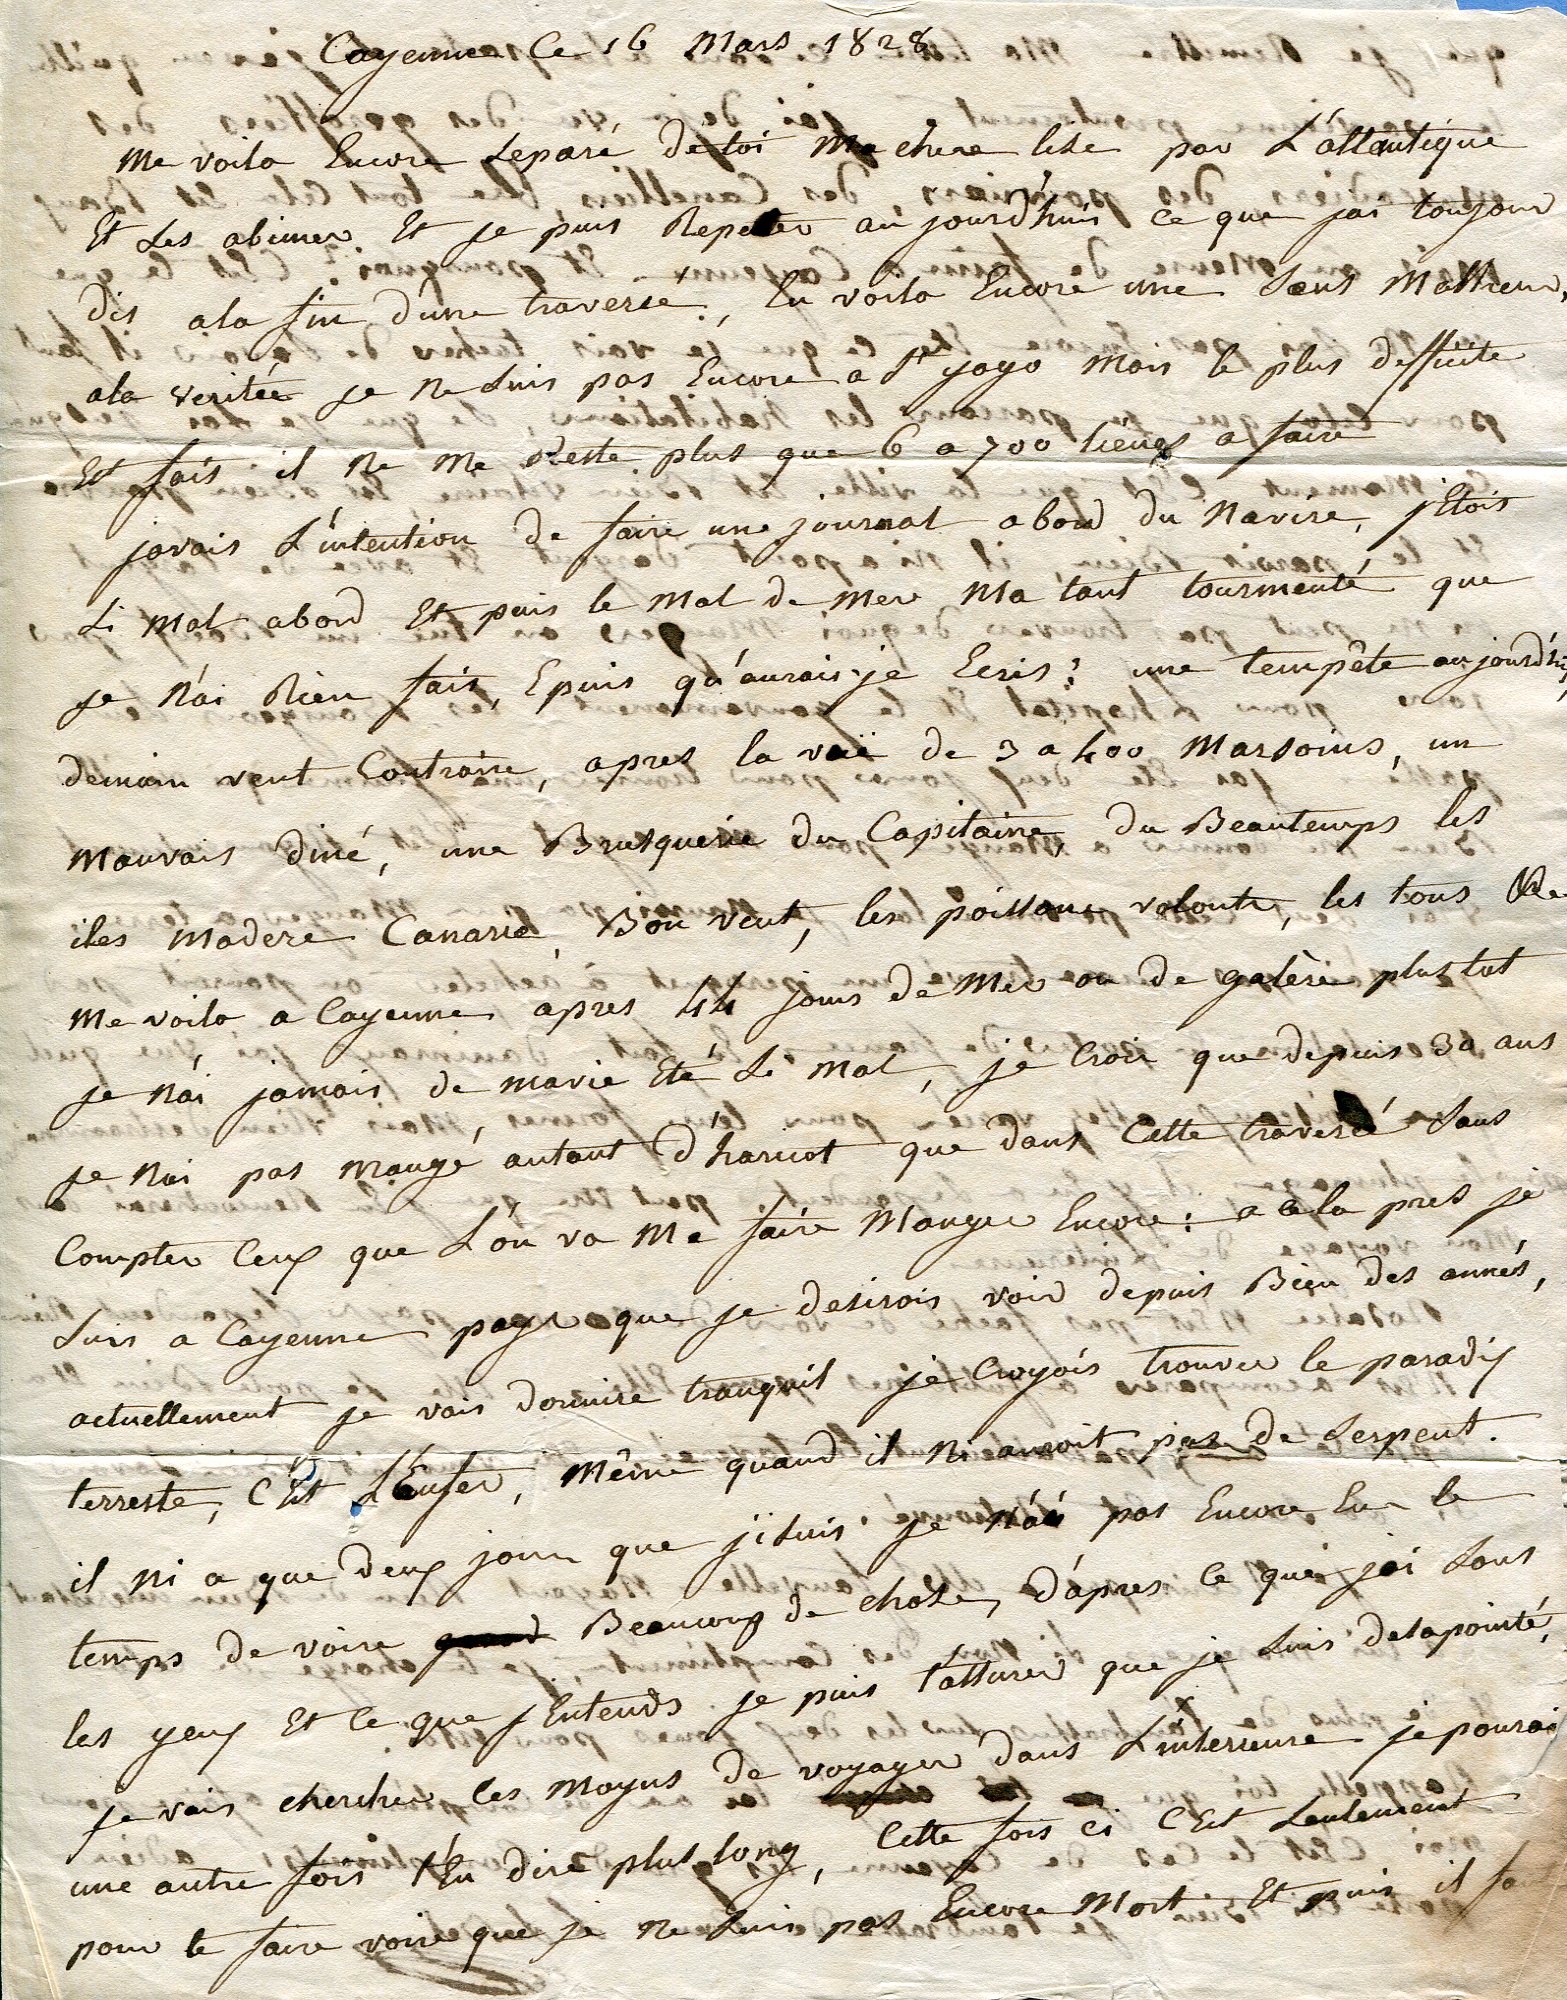 Cayenne Ce 16 Mars 1828
Me voila Encore Separé de toi Ma chere lise par L'attentique
Et Les abimes Et je puis Repeter au jourd'huis Ce que jai toujour
dis ala fin d'une traversé, En voila Encore une Sans Malheur,
ala veritée je Ne Suis pas Encore a St yago Mais le plus defficile
Et fais il Ne Me Reste plus que 6 a 700 liéues a faire
javais L'intention de faire une journal abord du Navire, j'Etois
Si Mal abord Et puis le Mal de Mer M'a tant tourmenté que
je N'ai Rien fais, Epuis qu'aurais-je Ecris? une tempête aujourd'hi,
demain vent Contraire, apres la vuë de 3 a 400 Marsoins, un
Mauvais diné, une Brusquerie du Capitaine, du Beautemps les
iles Madere Canarie, Bon vent, les poissons volants, les tons
Me voila a Cayenne apres 44 jours de Mer ou de galère plustot
je N'ai jamais de Mavie Eté Si Mal, je Crois que depuis 30 ans
je N'ai pas Mangé autant d'haricot que dans Cette traversé Sans
Compter Ceux que L'on va Me faire Manger Encore: a Cela pres je
Suis a Cayenne pays que je desirois voir depuis Bien des annés,
actuellement je vais dormire tranquil je Croyois trouver le paradis
terreste, C'Est L'Enfer, Même quand il Ni auroit pas de Serpent.
il Ni a que deux jour que j'i Suis je N'ai pas Encore Eu le
temps de voire Beaucoup de Chose, d'apres Ce que jai Sous
les yeux Et Ce que j'Entends je puis t'assurer que je Suis desapointé,
je vais chercher les Moyens de voyager dans L'interieure je pourai
une autre fois t'En dire plus long, Cette fois Ci C'Est Seulement
pour te faire voire que je Ne Suis pas Encore Mort Et puis il